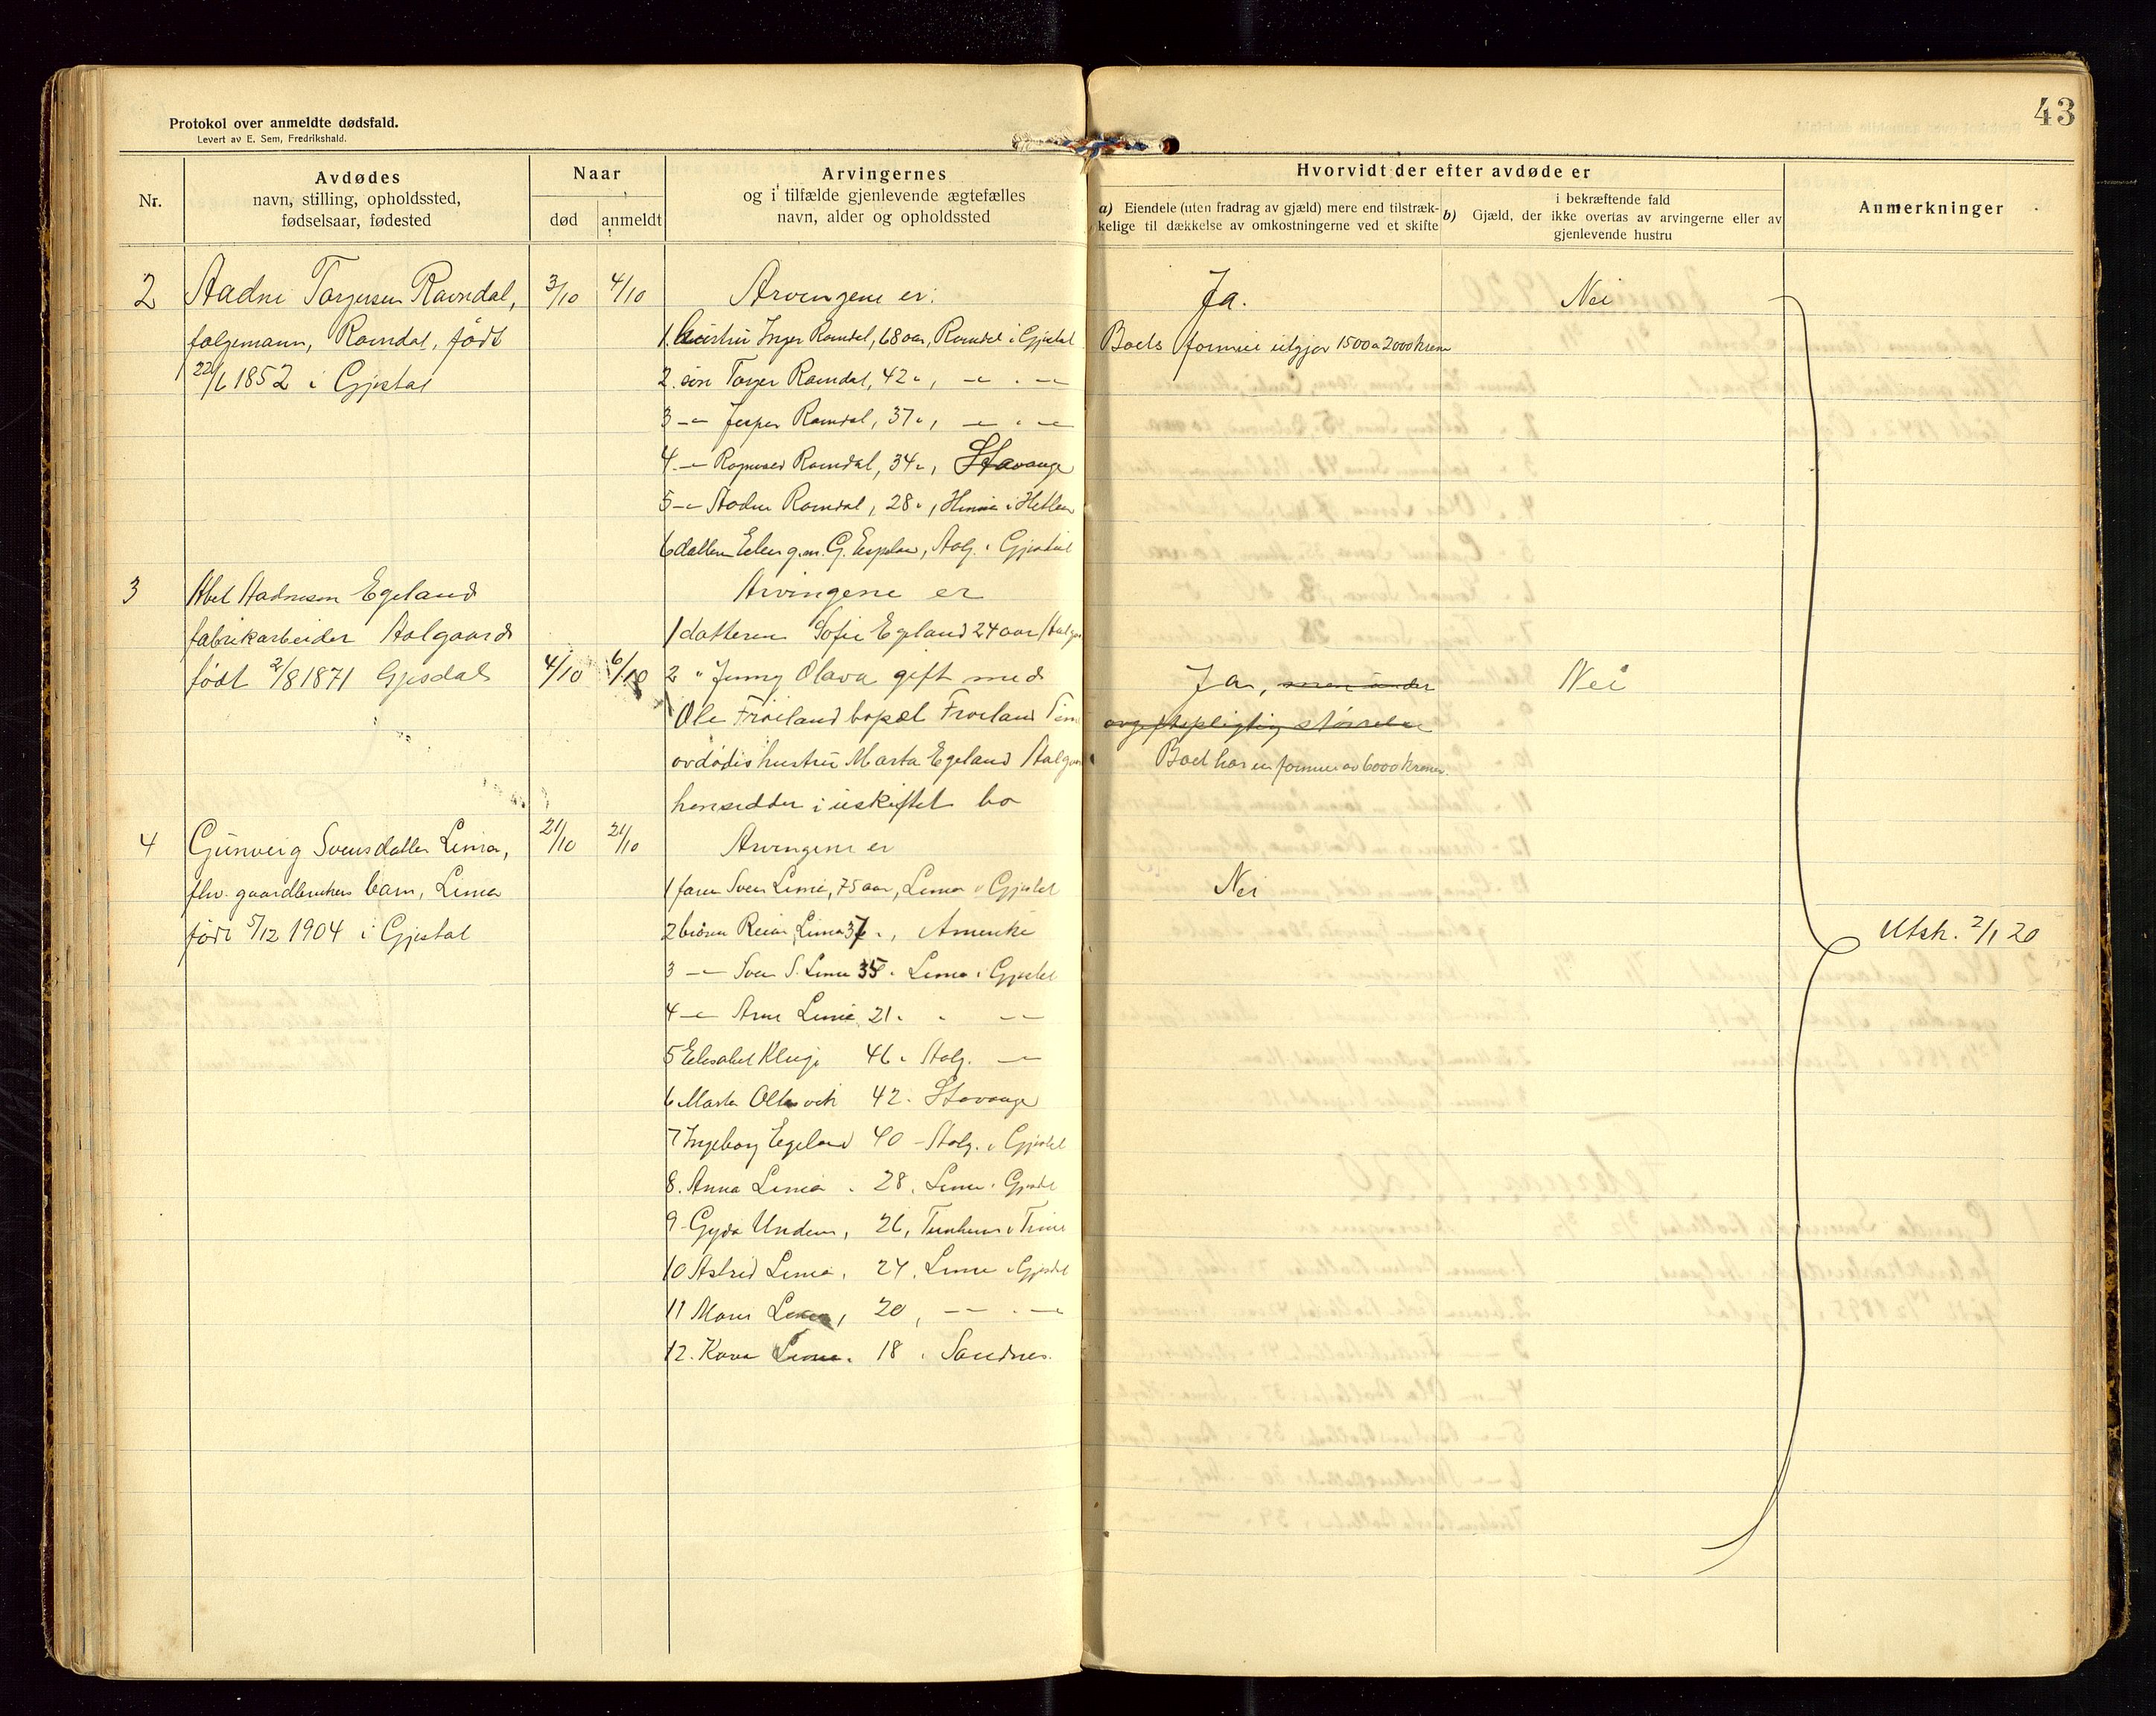 43
Protokol over anmeldte dødsfald.
Levert av E. Sem, Fredrikshald.
Nr.
Avdødes
navn, stilling, opholdssted,
fødselsaar, fødested
Naar
død
anmeldt
Arvingernes
og i tilfælde gjenlevende ægtefælles
navn, alder og opholdssted
Hvorvidt der efter avdøde er
a) Eiendele (uten fradrag av gjæld) mere end tilstræk-
kelige til dækkelse av omkostningerne ved et skifte
b) Gjæld, der i bekræftende fald
ikke overtas av arvingerne eller av
gjenlevende hustru
Anmerkninger
2 Aadne Torgersen Ravndal, 3/10 4/10 Arvingene er: Ja. Nei
folgemann, Ravndal, født 1. hustru Inger Ravndal, 68 aar, Ravndal i Gjestal Boets formue utgjør 1500 a 2000 kroner
22/6 1852 i Gjestal 2. søn Torger Ravndal, 42 ", —"— . —"—
3 —"— Jesper Ravndal, 37 ", —"— . —"—
4. —"— Ragnvald Ravndal, 34 ", Stavanger
5 —"— Aadne Ravndal, 28 ", Hinna i Hetland
6 datteren g.m. G. Espeland, Aalg. i Gjestal
3 Abel Aadnesen Egeland Arvingene er
fabrikarbeider Aalgaard 1 datteren Sofie Egeland 24 aar Aalga
født 2/8 1871 Gjesdal 4/10 6/10 2 " Jenny Olava gift med Ja, men under Nei
Ole Frøiland bopæl Frøiland Time avgiftspligtig størrelse
avdødes hustru Marta Egeland Aalgaar Boet har en formue av 6000 kroner.
hensidder i uskiftet bo
4 Gunveig Svensdatter Lima, 21/10 21/10 Arvingene er
fhv. gaardbrukers barn, Lima 1 faren Sven Lima, 75 aar, Lima i Gjestal Nei
født 5/12 1904 i Gjestal 2 broren Lima 37 ", Amerika Utsk. 2/1 20
3 —"— Sven S. Lima 35 " Lima i Gjestal
4 —"— Arne Lima 21 " " —"—
5 Elisabet 46 " Aalg. —"—
6 Marta 42 " Stavanger
7 Ingeborg Egeland 40 - Aalg. i Gjestal
8. Anna Lima . 28. Lima i Gjestal
9 - Gyda Undem, 26, Time
10 Astrid Lima, 24, Lima i Gjestal
11 Lima, 20, —"— . —"—
12. Lima. 18 . Sandnes.